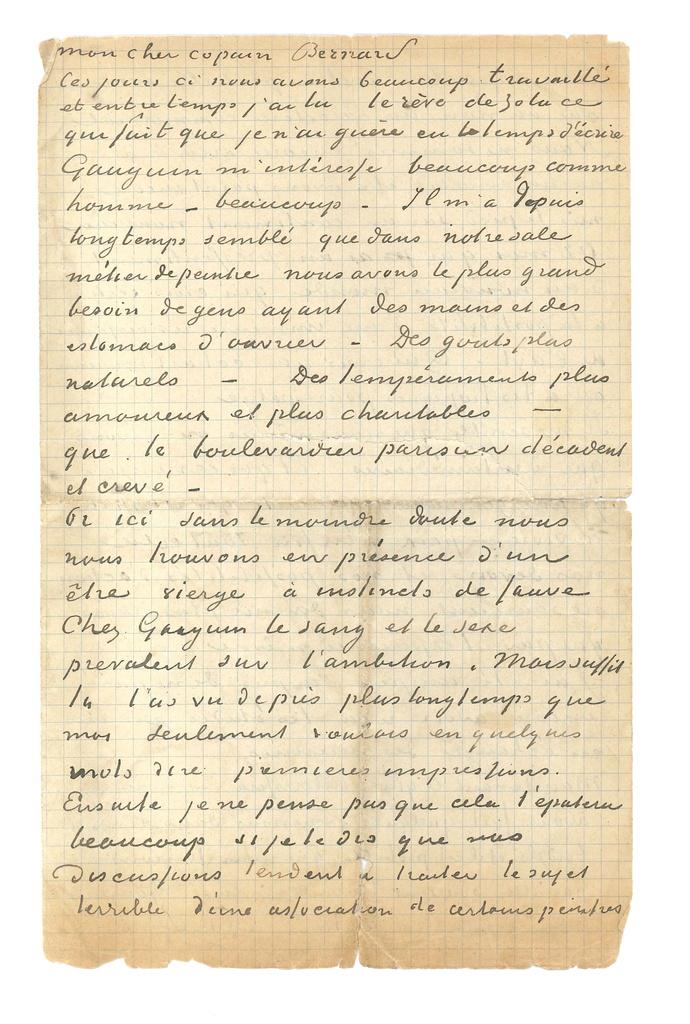 mon cher copain Bernard
Ces jours ci nous avons beaucoup travaillé
et entretemps j'ai lu le rêve de Zola ce
qui fait que je n'ai guère eu le temps d'écrire
Gauguin m'intéresse beaucoup comme
homme – beaucoup – Il m'a depuis
longtemps semblé que dans notre sale
métier de peintre nous avons le plus grand
besoin de gens ayant des mains et des
estomacs d'ouvrier – Des gouts plus
naturels – Des tempéraments plus
amoureux et plus charitables —
que le boulevardier parisien décadent
et crevé –
Or ici sans le moindre doute nous
nous trouvons en présence d'un
être vierge à instincts de sauve
Chez Gauguin le sang et le sexe
prevalent sur l'ambition. Mais suffit
tu l'as vu de près plus longtemps que
moi seulement voulais en quelques
mots dire premieres impressions.
Ensuite je ne pense pas que cela t'épatera
beaucoup si je te dis que nos
discussions tendent à traiter le sujet
terrible d'une association de certains peintres